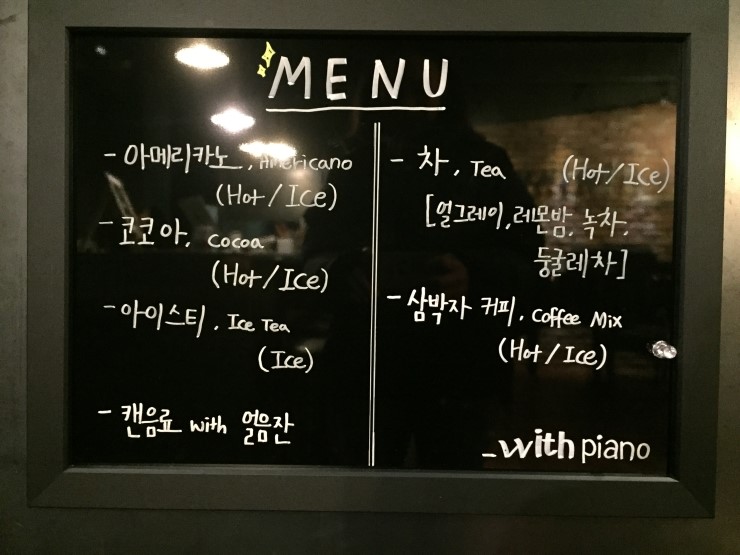 MENU
- 아메리카노, Americano
(Hot/Ice)
- 코코아, cocoa
(Hot/Ice)
- 아이스티, Ice Tea
(Ice)
- 캔음료 with 얼음잔
- 차, Tea (Hot/Ice)
[얼그레이, 레몬밤, 녹차,
둥굴레차]
- 삼박자 커피, Coffee Mix
(Hot/Ice)
_with piano